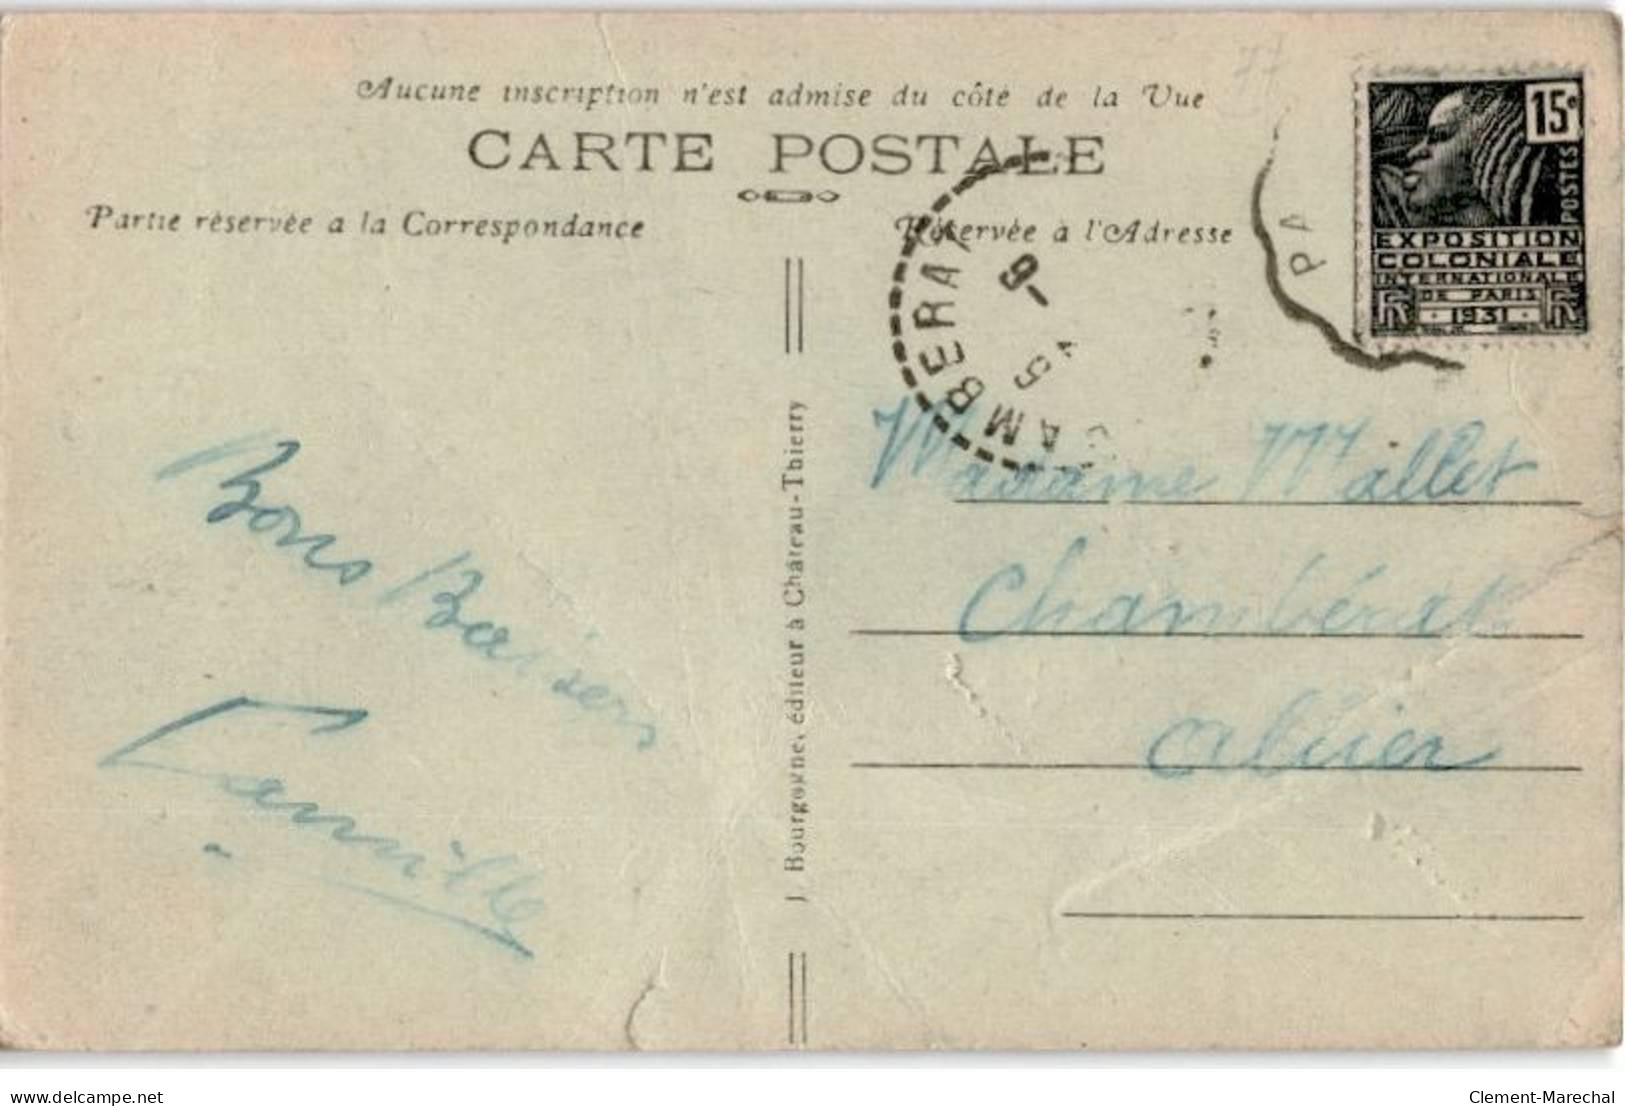 Aucune inscription n'est admise du côté de la Vue
CARTE POSTALE
Partie réservée a la Correspondance
Réservée à l'Adresse
15c
POSTES
EXPOSITION
COLONIALE
INTERNATIONALE
DE PARIS
RF 1931 RF
PA
AMBERA
9-
5
Bons Baisers
Camille
J. Bourgogne, éditeur à Château-Thierry
Madame Mallet
Chambérat
Allier
delcampe.net
Clement-Marechal